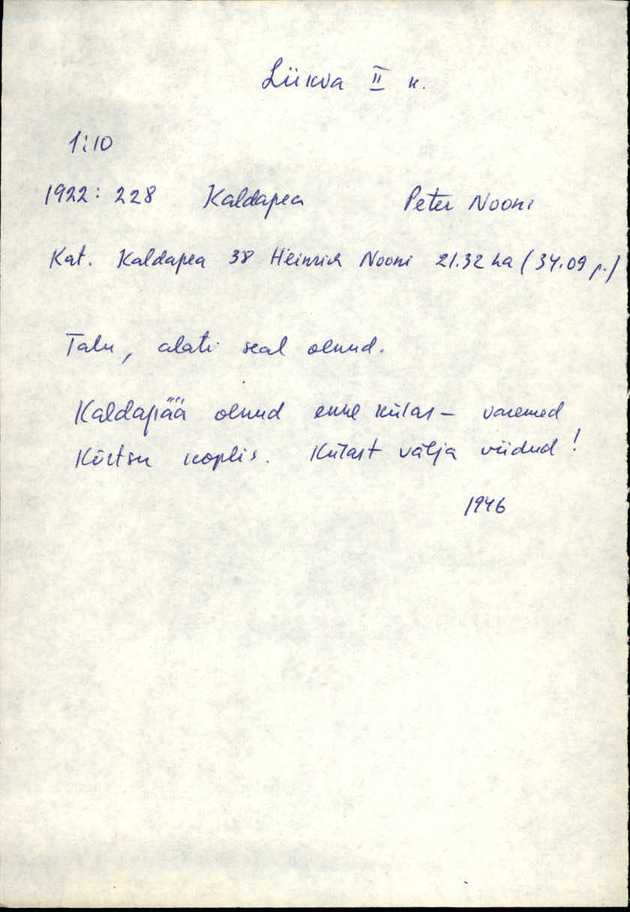 Liikva II k.
1:10
1922: 228 Kaldapea Peter Nooni
Kat. Kaldapea 38 Heinrich Nooni 21.32 ha (34.09 p.)
Talu, alati seal olnud.
Kaldapää olnud enne külas – varemed
Kõrtsu koplis. Külast välja viidud!
1946